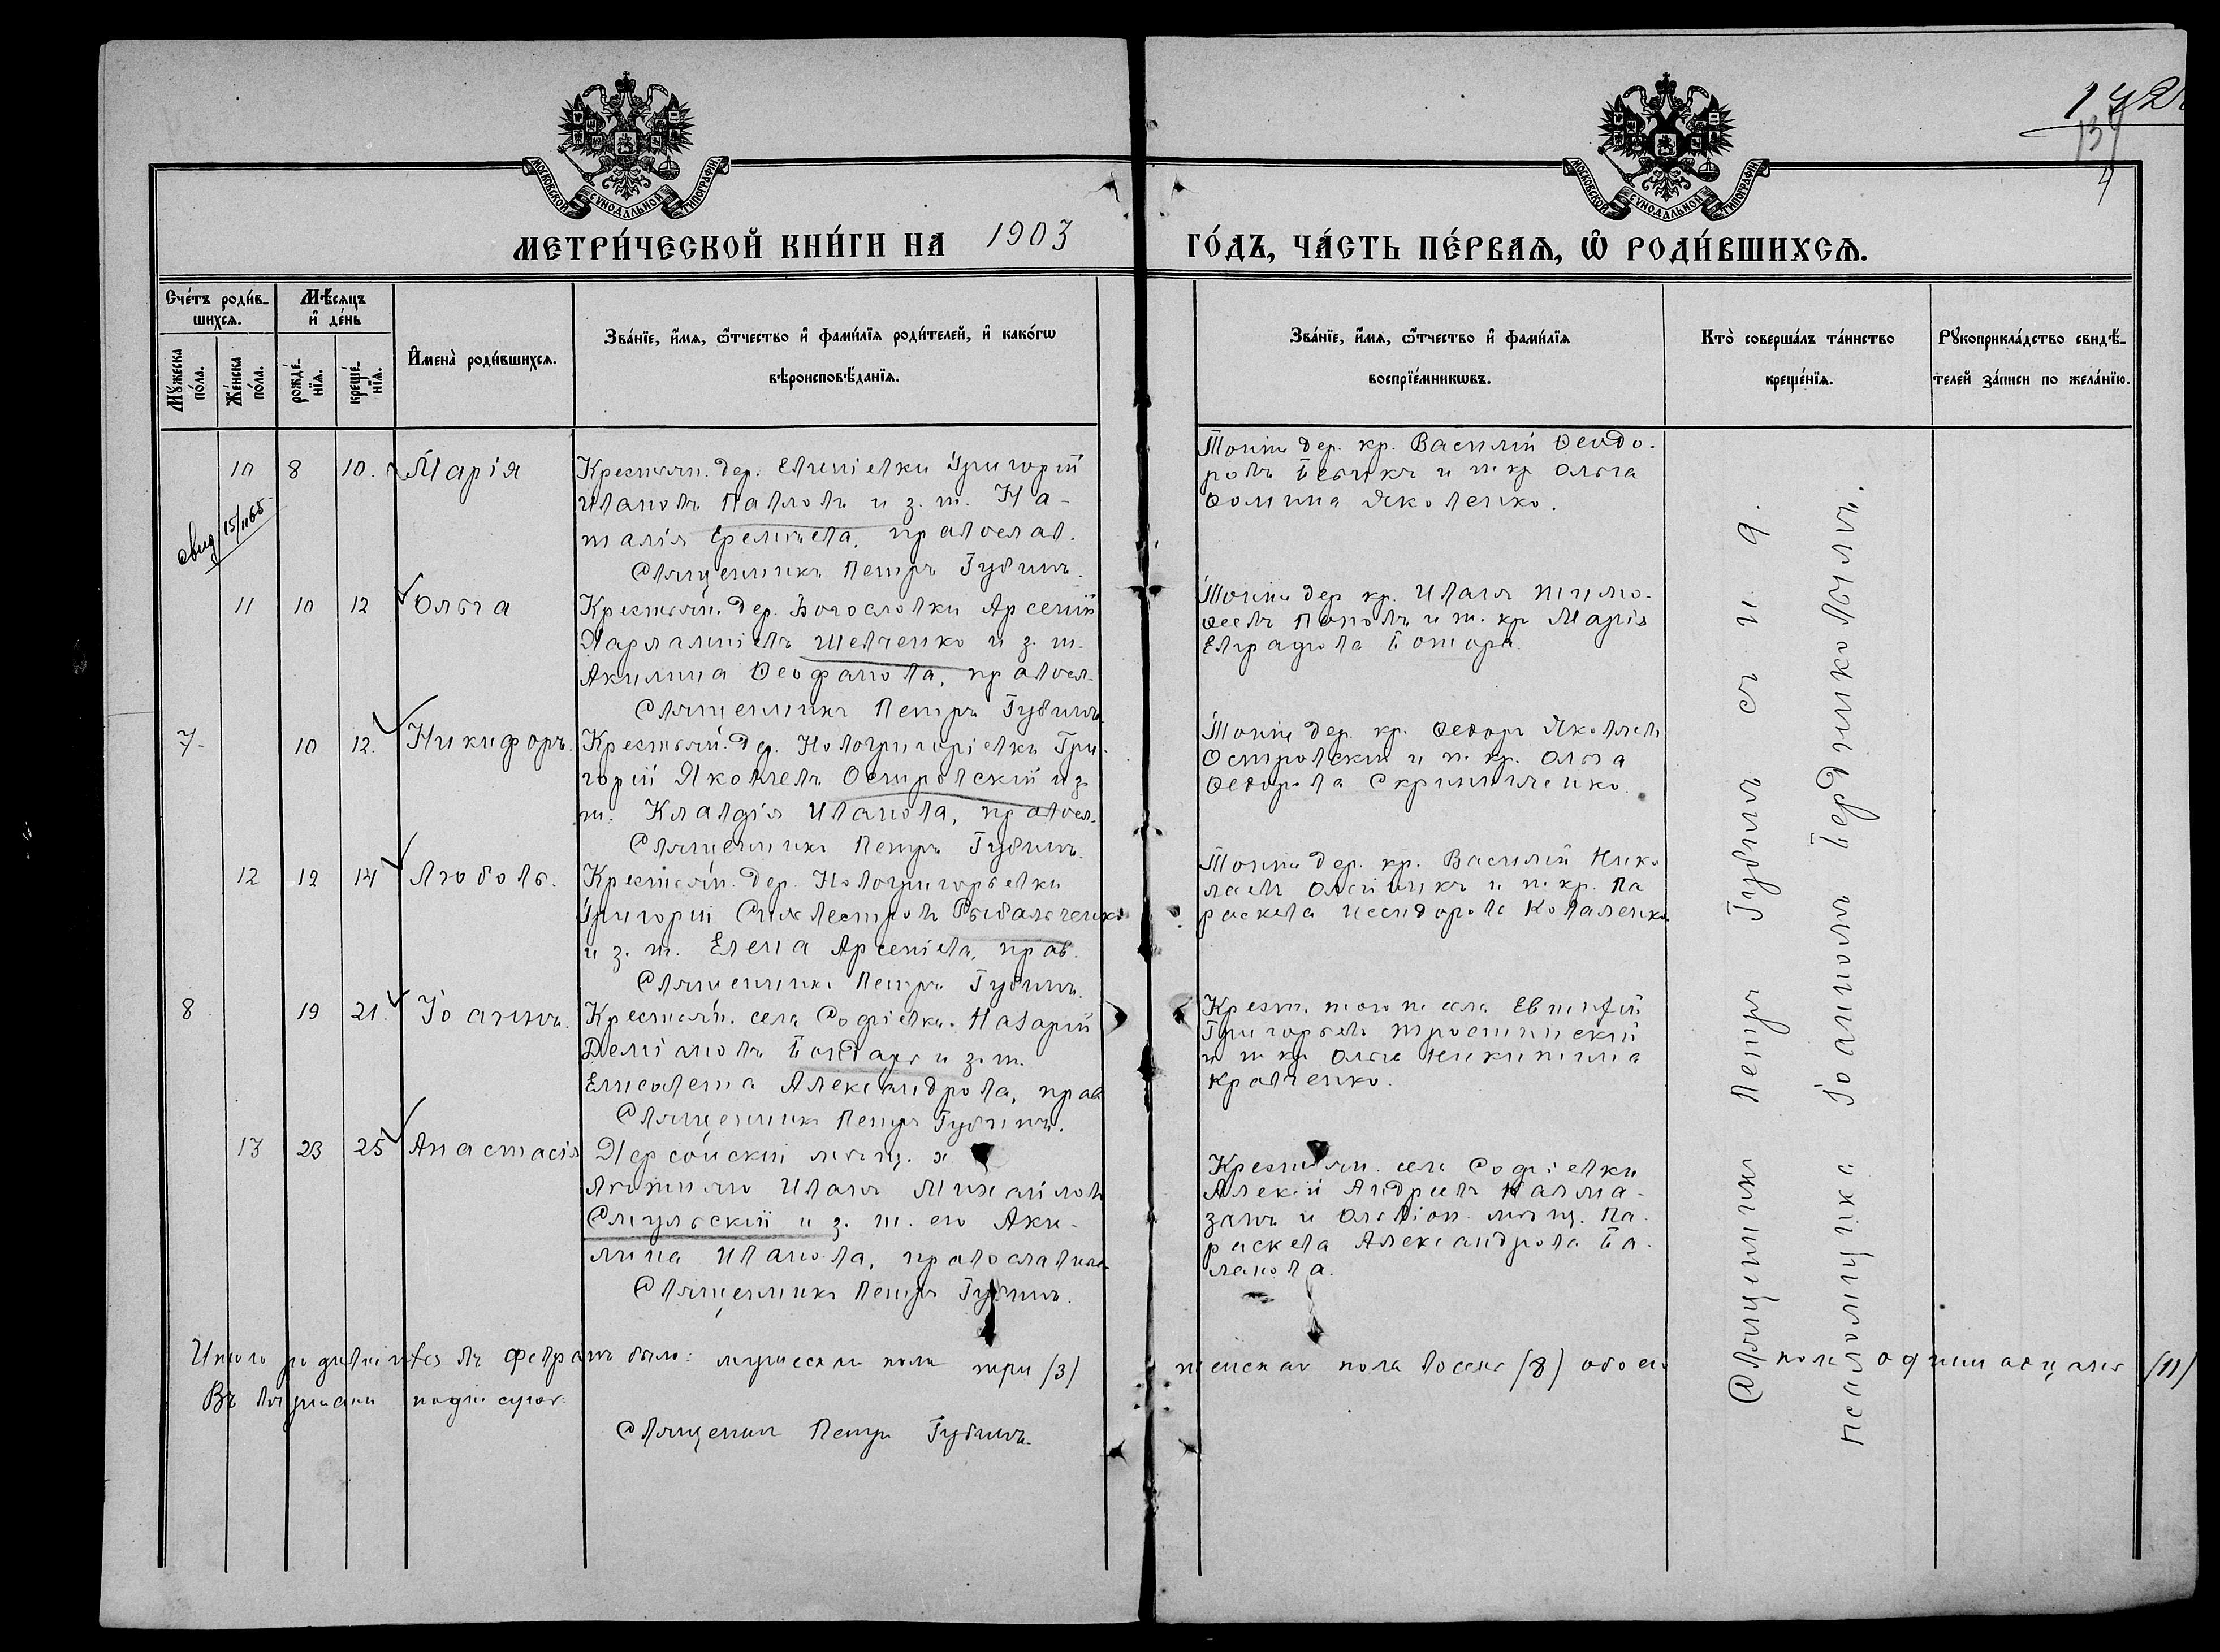 МОСКОВСКОЙ СУНОДАЛЬНОЙ ТИПОГРАФІИ
МОСКОВСКОЙ СУНОДАЛЬНОЙ ТИПОГРАФІИ
МЕТРИ́ЧЕСКОЙ КНИ́ГИ НА 1903 ГО́ДЪ, ЧА́СТЬ ПЕ́РВАѦ, Ѡ҆ РОДИ́ВШИХСѦ.
Сче́тъ роди́в-
шихсѧ.
Мѣ́сѧцъ
и҆ де́нь
Мꙋ́жеска
по́ла.
Же́нска
по́ла.
рожде́-
нїѧ.
креще́-
нїѧ.
И҆мена̀ роди́вшихсѧ.
Зва́нїе, и҆́мѧ, ѻ҆́тчество и҆ фами́лїѧ роди́телей, и҆ како́гѡ
вѣроисповѣ́данїѧ.
Зва́нїе, и҆́мѧ, ѻ҆́тчество и҆ фами́лїѧ
воспрїе́мникѡвъ.
Кто̀ соверша́лъ та́инство
креще́нїѧ.
Рꙋкоприкла́дство свидѣ́-
телей за́писи по жела́нїю.
10 8 10. Марія
Крестьян. дер. Евгеніевки Григорій
Ивановъ Павловъ и з. ж. На-
талія Еремѣева, православ.
Священникъ Петръ Губинъ.
Тойже дер. кр. Василій Ѳеодо-
ровъ и ж кр Ольга
Ѳомина Яковенко.
свид 15/1165
11 10 12 Ольга
Крестьян. дер. Богословки Арсеній
Харлампіевъ Шевченко и з. ж.
Акилина Ѳеофанова, правосл.
Священникъ Петръ Губинъ
Тойже дер кр. Иванъ Тимо-
ѳеевъ Поповъ и ж. кр Марія
Евграфова
7. 10 12. Никифоръ.
Крестьян. дер. Новогригоріевки Гри-
горій Яковлевъ Островскій и з.
ж. Клавдія Иванова, правосл.
Священникъ Петръ Губинъ.
Тойже дер. кр. Ѳеодоръ Яковлевъ
Островскій и ж. кр. Ольга
Ѳеодорова
12 12 14 Любовь.
Крестьян. дер. Новогригорьевки
Григорій Сильвестровъ Рыбальченко
и з. ж. Елена Арсеніева, прав.
Священникъ Петръ Губинъ.
Тойже дер. кр. Василій Нико
лаевъ и ж кр. Па
раскева Исидорова Коваленко
8 19 21. Іоаннъ.
Крестьян. села Софіевки Назарій
Деміановъ Бондарь и з. ж.
Елисавета Александрова, прав
Священникъ Петръ Губинъ.
Крест. того же села Евтихій
Григорьевъ Тростинскій
и ж кр Ольга Никитина
Кравченко.
13 23 25 Анастасія
Херсонскій мѣщ.
Иванъ Михайловъ
Смульскій и з. ж. его Аки-
лина Иванова, православные
Священникъ Петръ Губинъ.
Крестьян. села Софіевки
Алексій Андреевъ
и мѣщ. Па-
раскева Александрова Ба-
ланова.
Священникъ Петръ Губинъ съ и. д.
псаломщика Іоанномъ
Итого родившихся въ февралѣ было: мужеска пола три (3) женскаго пола восемь (8) обоего пола одиннадцать (11)
Въ подписуюсь:
Священник Петръ Губинъ.